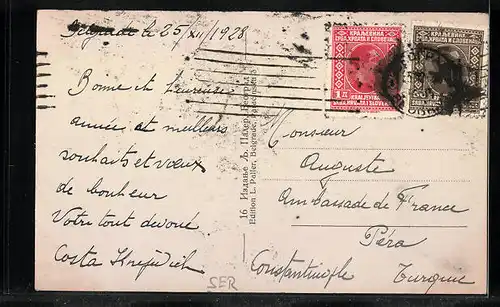 Belgrade le 25/XII/1928
Bonne et heureuse
année et meilleurs
souhaits et vœux
de bonheur
Votre tout dévoué
Costa
16 Издање Љ. Пахер, Београд
Edition L. Paller, Belgrade,
КРАЉЕВИНА
СРБА, ХРВАТА И СЛОВЕНАЦА
1 Д
КРАЉЕВИНА
Monsieur
Auguste
Ambassade de France
Péra
Constantinople
Turquie
SER